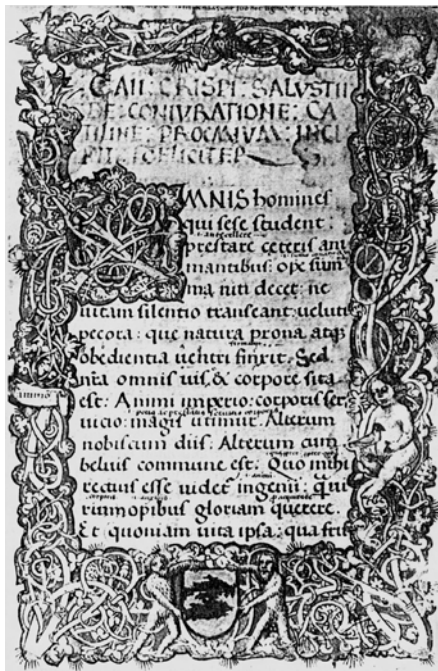 C·AII: CRISPI: SALUSTII
DE: CONIURATIONE: CA
TILINE: PROEMIUM: INCI
PIT: FOELICITER
OMNIS homines
qui sese student
prestare ceteris ani
mantibus: ope sum
ma niti decet: ne
uitam silentio transeant: ueluti
pecora: que natura prona: atq;
obedientia uentri finxit. Sed
nra omnis uis: & corpore sita
est: Animi imperio: corporis ser
uicio: magis utimur. Alterum
nobiscum diis: Alterum cum
beluis commune est. Quo mihi
rectius esse uidet ingenii: qui
rium opibus gloriam querere.
Et quoniam uita ipsa: qua frui